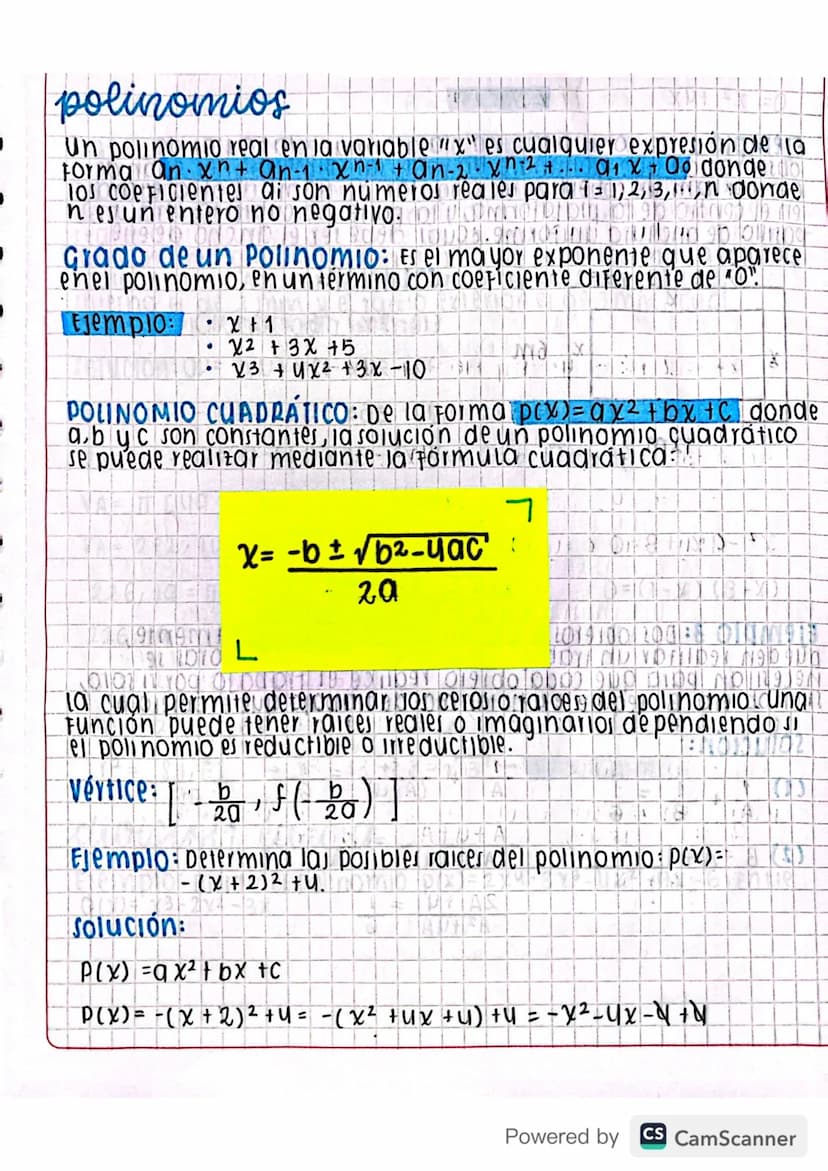 polinomios
Un polinomio real en la variable "x" es cualquier expresión de la
forma an·xⁿ + an-1·xⁿ⁻¹ + an-2·xⁿ⁻² + ... a₁x + a₀ donde
los coeficientes ai son números reales para i = 1,2,3,...,n donde
n es un entero no negativo.
Grado de un Polinomio: Es el mayor exponente que aparece
en el polinomio, en un término con coeficiente diferente de "0".
Ejemplo: • x + 1
• x² + 3x + 5
• x³ + 4x² + 3x - 10
POLINOMIO CUADRÁTICO: De la forma p(x) = ax² + bx + c donde
a, b y c son constantes, la solución de un polinomio cuadrático
se puede realizar mediante la fórmula cuadrática:
x = -b ± √b² - 4ac
2a
la cual permite determinar los ceros o raíces del polinomio. Una
función puede tener raíces reales o imaginarios dependiendo si
el polinomio es reductible o irreductible.
Vértice: [ - b/2a , f(- b/2a) ]
Ejemplo: Determina las posibles raíces del polinomio: p(x) =
- (x + 2)² + 4.
Solución:
P(x) = ax² + bx + c
P(x) = -(x + 2)² + 4 = -(x² + 4x + 4) + 4 = -x² - 4x - 4 + 4
Powered by CS CamScanner